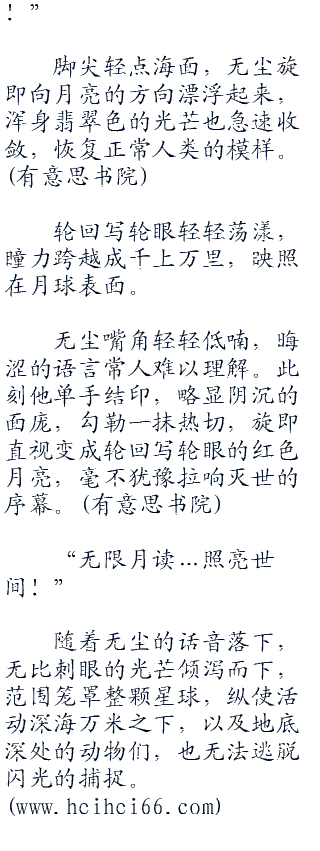 ！”
脚尖轻点海面，无尘旋
即向月亮的方向漂浮起来，
浑身翡翠色的光芒也急速收
敛，恢复正常人类的模样。
(有意思书院)
轮回写轮眼轻轻荡漾，
瞳力跨越成千上万里，映照
在月球表面。
无尘嘴角轻轻低喃，晦
涩的语言常人难以理解。此
刻他单手结印，略显阴沉的
面庞，勾勒一抹热切，旋即
直视变成轮回写轮眼的红色
月亮，毫不犹豫拉响灭世的
序幕。(有意思书院)
“无限月读…照亮世
间！”
随着无尘的话音落下，
无比刺眼的光芒倾泻而下，
范围笼罩整颗星球，纵使活
动深海万米之下，以及地底
深处的动物们，也无法逃脱
闪光的捕捉。
(www.hcihci66.com)